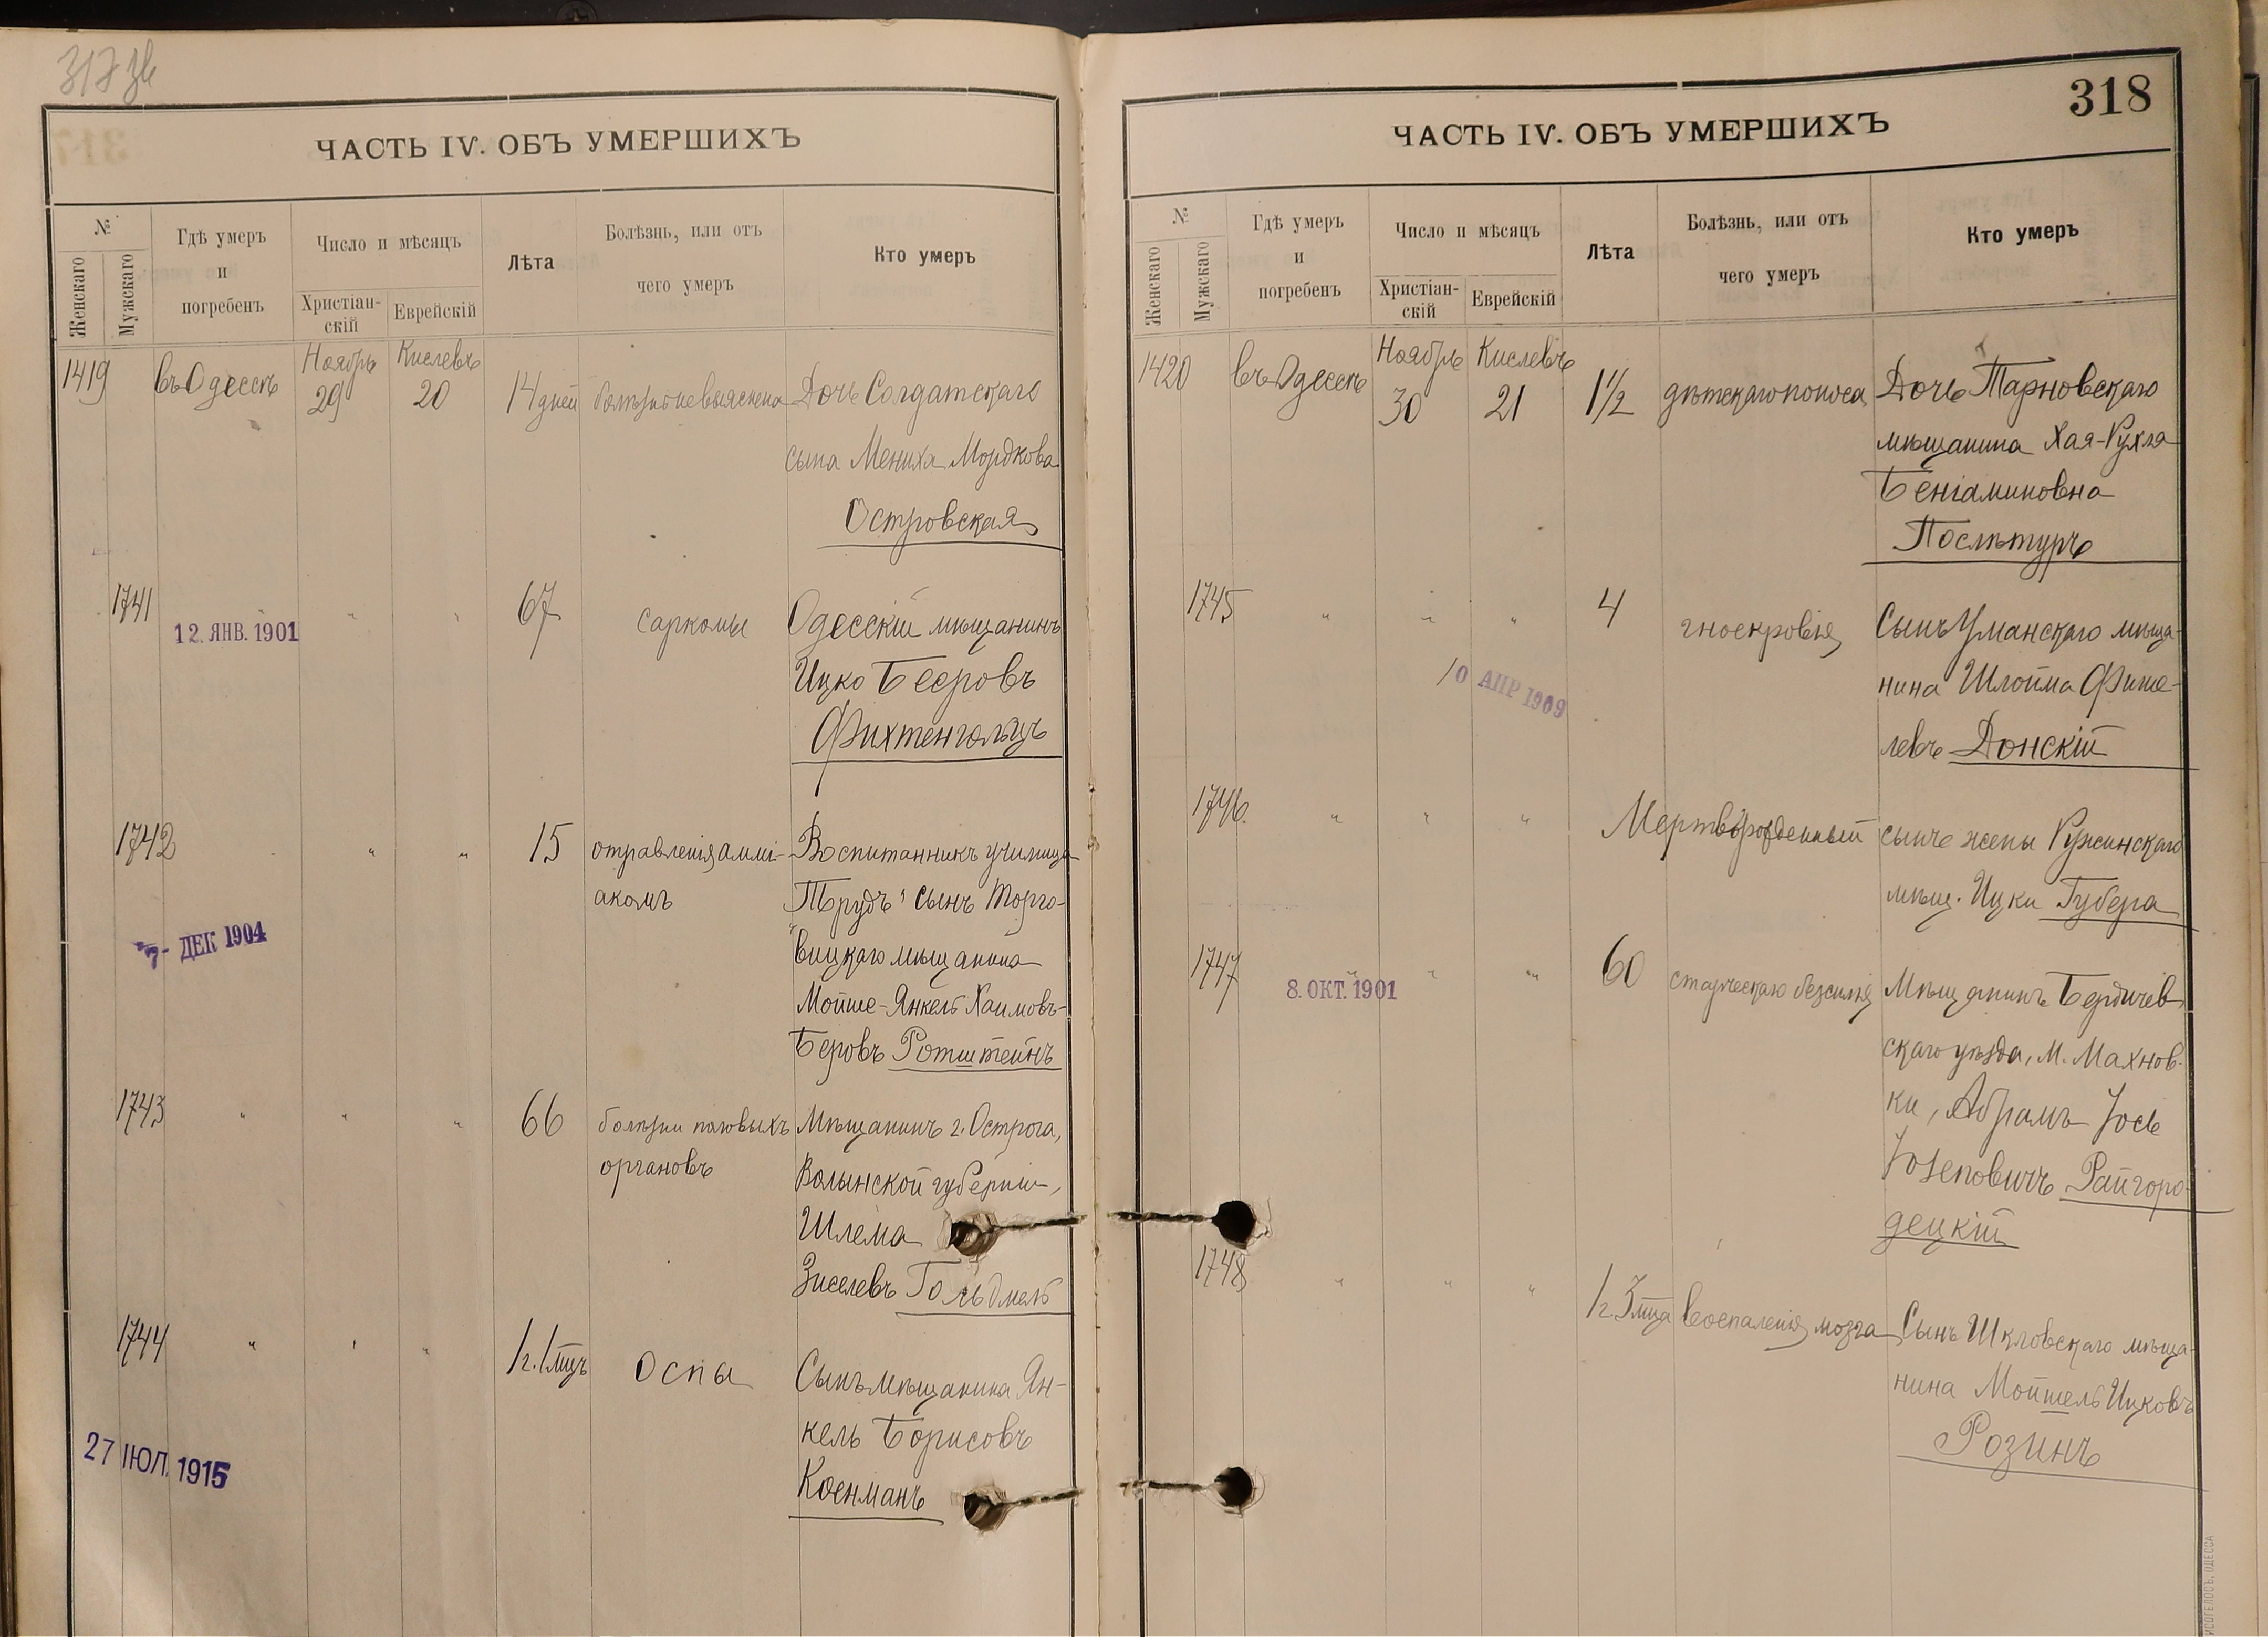 317 зв
ЧАСТЬ IV. ОБЪ УМЕРШИХЪ
№
Женскаго
Мужскаго
Гдѣ умеръ
и
погребенъ
Число и мѣсяцъ
Христіан-
скій
Еврейскій
Лѣта
Болѣзнь, или отъ
чего умеръ
Кто умеръ
1419 въ Одессѣ Ноябрь 29 Кислевъ 20 14 дней болѣзнь невыяснена Дочь Солдатскаго
сына Мениха Мордкова
Островская
1741 " " 67 саркомы Одесскій мѣщанинъ
12. ЯНВ. 1901
Ицко Бееровъ
Фихтенгольцъ
1742 " " 15 отравленія аммі- Воспитанникъ училища
акомъ „Трудъ" сынъ Торго-
7- ДЕК 1904
вицкаго мѣщанина
Мойше-Янкель Хаимовъ-
Беровъ Ротштейнъ
1743 " " " 66 болѣзни половыхъ Мѣщанинъ г. Острога,
органовъ Волынской губерніи,
Шлема
Зиселевъ Гольдмель
1744 " " " 1 г. 1 мцъ Оспы Сынъ мѣщанина Ян-
кель Борисовъ
27 ІЮЛ. 1915
Коенманъ
318
ЧАСТЬ IV. ОБЪ УМЕРШИХЪ
№
Женскаго
Мужскаго
Гдѣ умеръ
и
погребенъ
Число и мѣсяцъ
Христіан-
скій
Еврейскій
Лѣта
Болѣзнь, или отъ
чего умеръ
Кто умеръ
1420 въ Одессѣ Ноябрь 30 Кислевъ 21 1½ дѣтскаго поноса Дочь Тарновскаго
мѣщанина Хая-Рухля
Беніаминовна
Послѣтуръ
1745 " " " 4 гноекровія Сынъ Уманскаго мѣща-
10 АПР 1909
нина Шлойма Фише-
левъ Донскій
1746 " " " Мертворожденный сынъ жены Ружинскаго
мѣщ. Ицки Губера
1747 " " " 60 старческаго безсилія Мѣщанинъ Бердичев-
8. ОКТ. 1901
скаго уѣзда, м. Махнов-
ки, Абрамъ Іось
Іозеповичъ Райгоро-
децкій
1748 " " " 1 г. 3 мца воспаленія мозга Сынъ Шкловскаго мѣща-
нина Мойшель Ицковъ
Розинъ